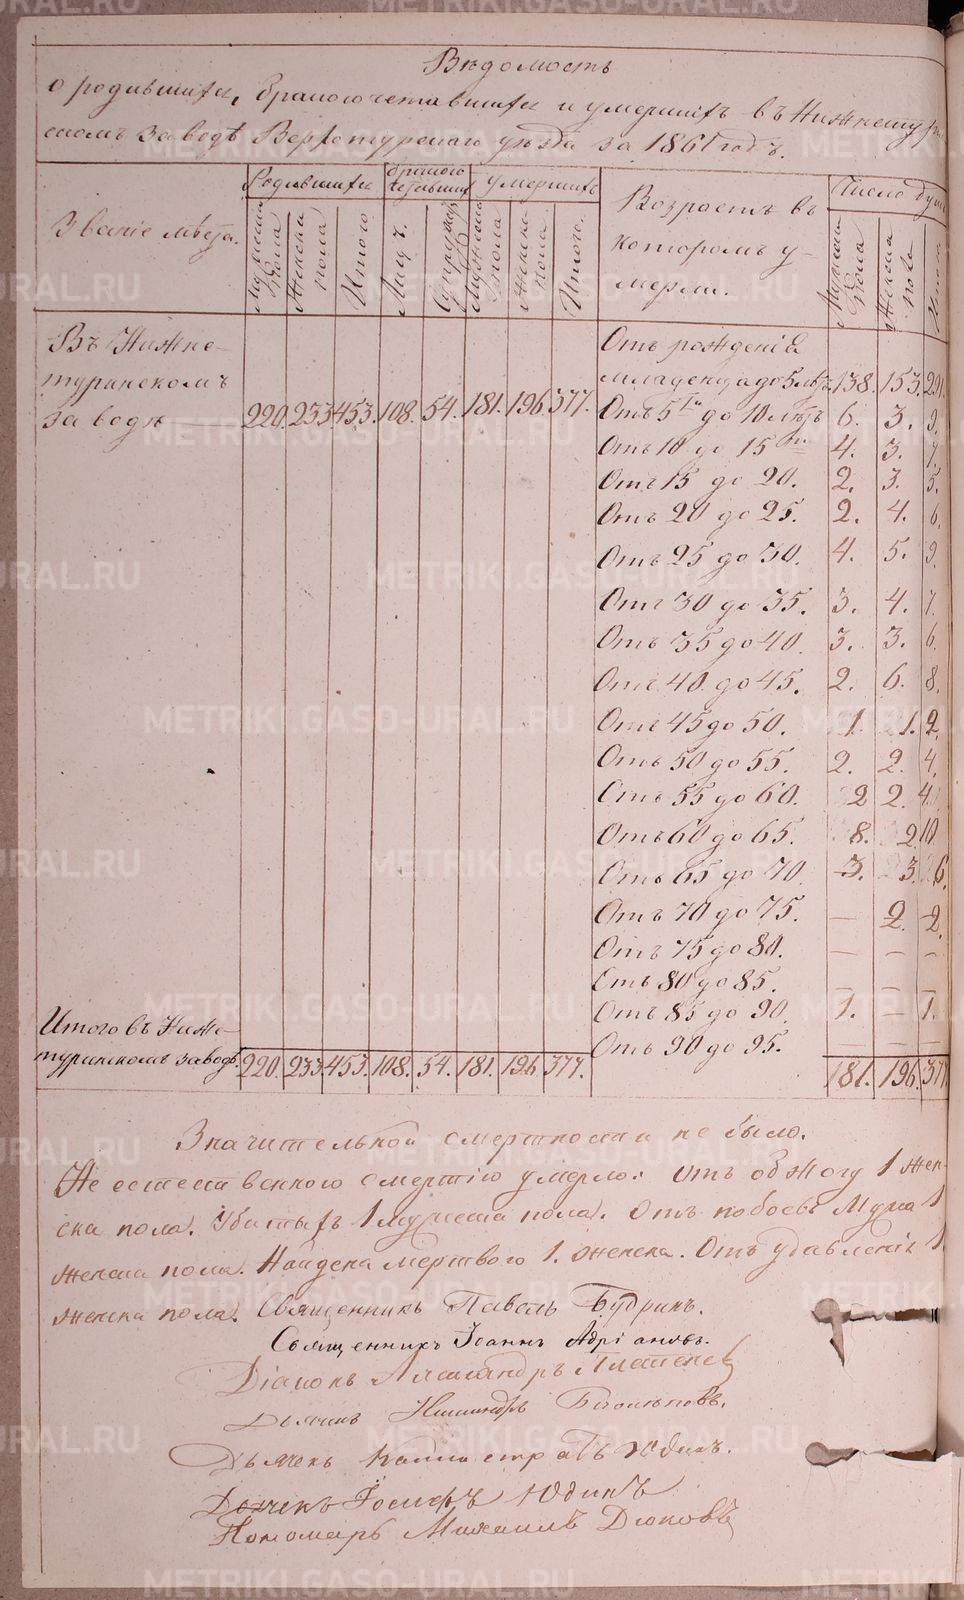 Вѣдомость
о родившихся, бракосочетавшихся и умершихъ въ Нижнетурин
скомъ заводѣ Верхотурскаго уѣзда за 1861 годъ.
Званіе мѣста.
Родившихся
Мужеска пола
Женска пола
Итого
бракосочетавшихся
Лицъ.
Супружествъ
умершихъ
Мужеска пола
Женска пола.
Итого.
Возрастъ въ
которомъ у-
мерли.
Число душъ
Мужеска пола
Женска пола
Итого
Въ Нижне-
туринскомъ
заводѣ 220. 233 453. 108. 54. 181. 196. 377.
Отъ рожденія
младенца до 5 лѣтъ 138. 153. 291.
Отъ 5ти до 10 лѣтъ 6. 3. 9.
Отъ 10 до 15ти 4. 3. 7.
Отъ 15 до 20. 2. 3. 5.
Отъ 20 до 25. 2. 4. 6.
Отъ 25 до 30. 4. 5. 9.
Отъ 30 до 35. 3. 4. 7.
Отъ 35 до 40. 3. 3. 6.
Отъ 40 до 45. 2. 6. 8.
Отъ 45 до 50. 1. 1. 2.
Отъ 50 до 55. 2. 2. 4.
Отъ 55 до 60. 2 2. 4.
Отъ 60 до 65. 8. 2 10.
Отъ 65 до 70. 3. 3. 6.
Отъ 70 до 75. — 2. 2.
Отъ 75 до 80. — — —
Отъ 80 до 85. — — —
Отъ 85 до 90. 1. — 1.
Отъ 90 до 95. — — —
Итого въ Ниже-
туринскомъ заводѣ. 220. 233 453. 108. 54. 181. 196 377. 181. 196. 377
Значительной смертности не было.
Не естественною смертію умерло: отъ обжогу 1 жен-
ска пола. Убитыхъ 1 мужеска пола. Отъ побоевъ Мужа 1
женска пола. Найдена мертвого 1. женска. Отъ удавленія 1.
женска пола. Священникъ Павелъ Будринъ.
Священникъ Іоаннъ Адріановъ.
Діаконъ Александръ
Дьячекъ
Дьячекъ Каллистратъ Юдинъ.
Дьячекъ Іосифъ Юдинъ
Пономарь Михаилъ Дюковъ
METRIKI.GASO-URAL.RU